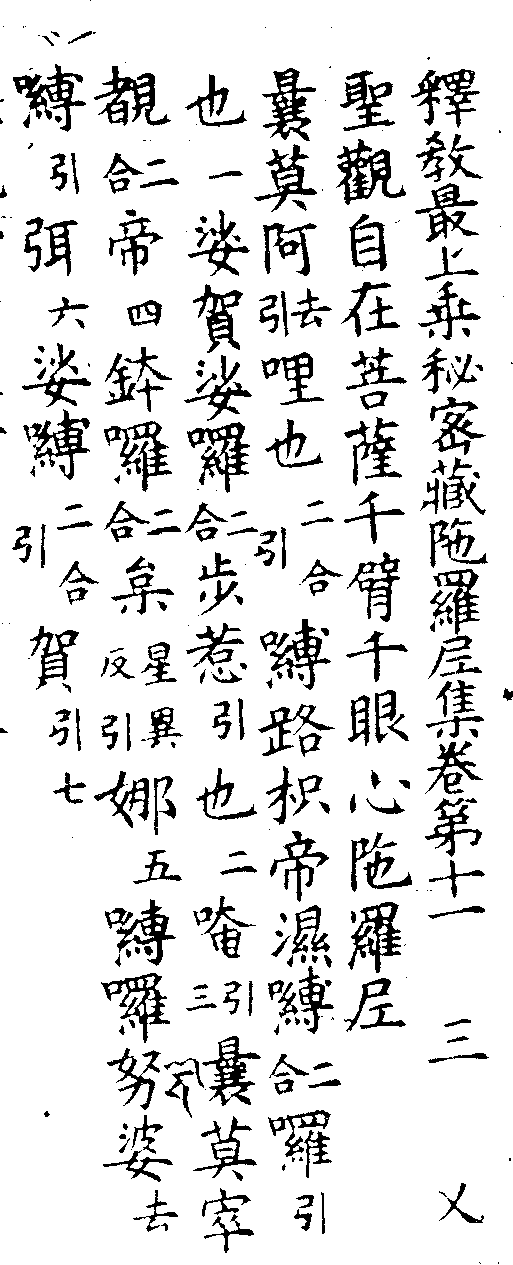 釋教最上乘秘密藏陁羅尼集卷第十一 三 乂
聖觀自在菩薩千臂千眼心陁羅尼
曩莫阿去引哩也二合引嚩路枳帝濕嚩二合羅引
也一娑賀娑羅二合步惹引也二唵引三曩莫窣
覩二合帝四鉢囉二合枲星異反引娜五嚩囉努婆去
嚩引弭六娑嚩二合引賀引七